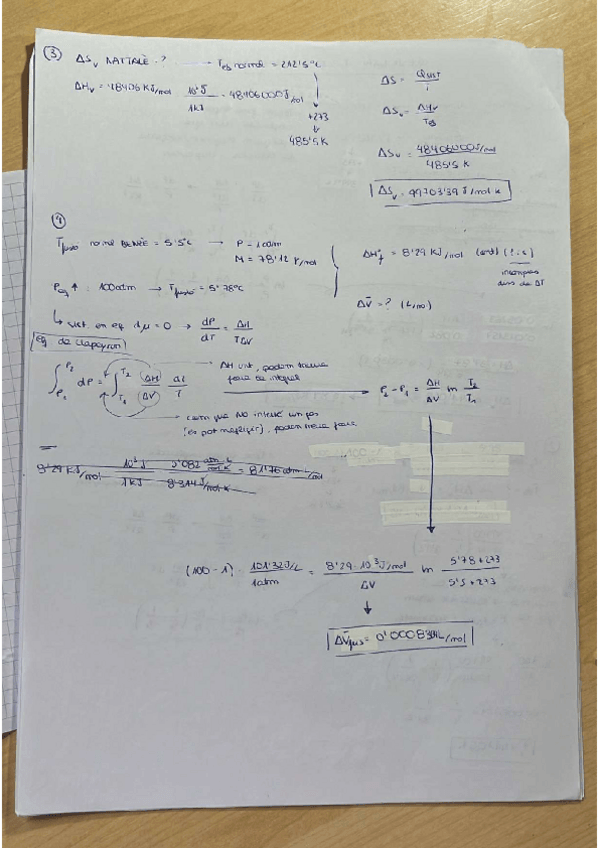 ③ ΔSv NAFTALÈ ? → Teb normal = 212'5 °C
ΔHv = 48406 KJ/mol · 10³ J / 1 KJ = 48406000 J/mol
+273
485'5 K
ΔS = Qsist / T
ΔSv = ΔHv / Teb
ΔSv = 48406000 J/mol / 485'5 K
ΔSv = 99703'39 J/mol K
Tfusió normal BENZÈ = 5'5 °C → P = 1 atm
M = 78'12 g/mol
Peq ↑ : 100 atm → Tfusió = 5'78 °C
ΔH°f = 8'29 KJ/mol (cnt)
ΔV̄ = ? (L/mol)
↳ sist. en eq dμ = 0 → dP/dT = ΔH / TΔV
eq de Clapeyron
∫ P1 P2 dP = ∫ T1 T2 ΔH/ΔV dT/T
ΔH cnt, podem treure
fora de integral
com que NO intervé un gas
(es pot negligir), podem treure fora
P2 - P1 = ΔH/ΔV ln T2/T1
8'29 KJ/mol · 10³ J / 1 KJ · 0'082 atm·L/mol·K / 8'314 J/mol·K = 81'76 atm·L/mol
(100 - 1) · 101'32 J/L / 1 atm = 8'29 · 10³ J/mol / ΔV ln 5'78 + 273 / 5'5 + 273